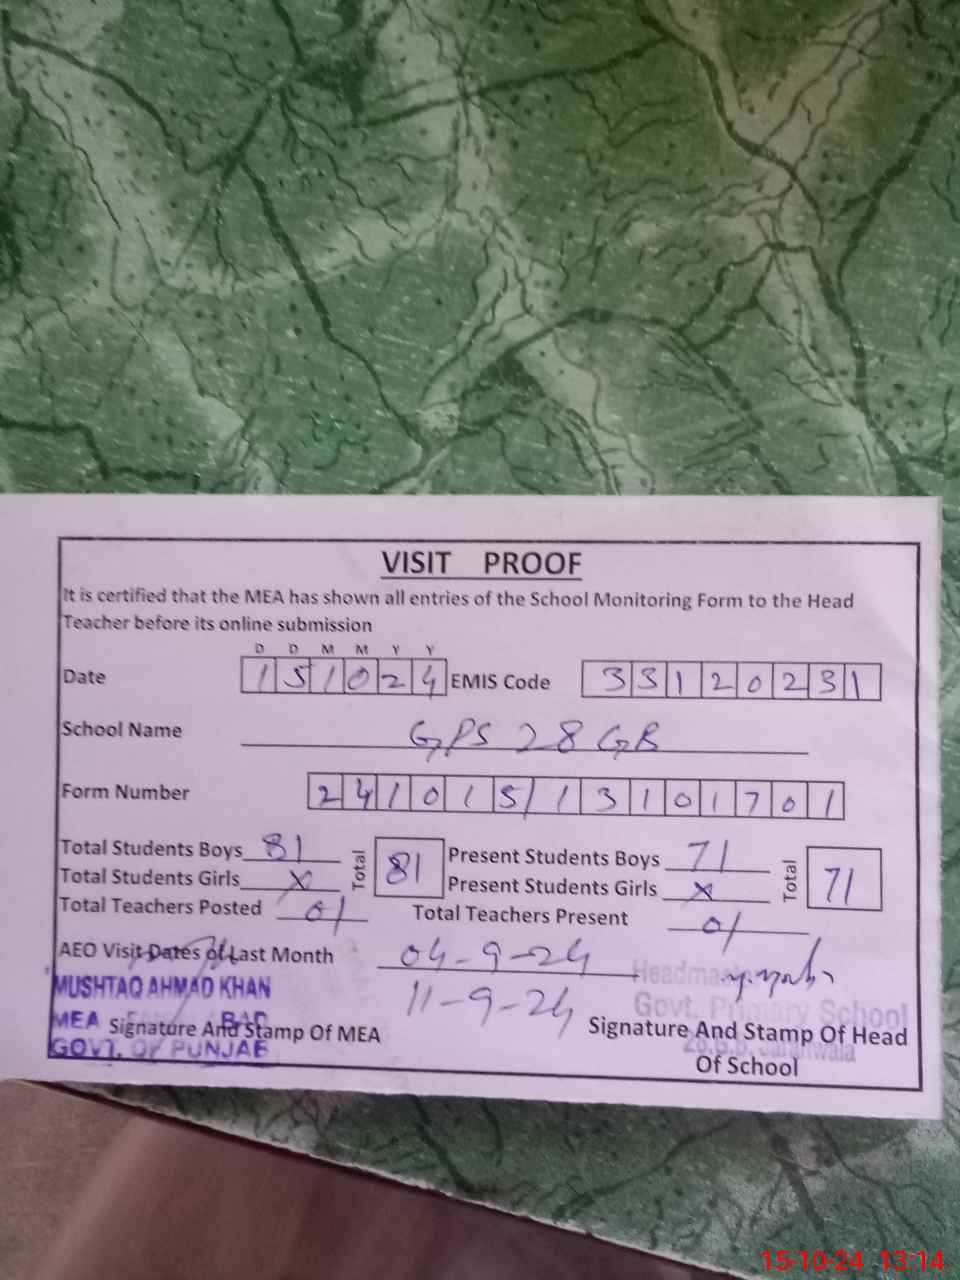 VISIT PROOF
It is certified that the MEA has shown all entries of the School Monitoring Form to the Head
Teacher before its online submission
D D M M Y Y
Date 151024 EMIS Code 33120231
School Name GPS 28 GB
Form Number 24101513101701
Total Students Boys 81 Total 81 Present Students Boys 71 Total 71
Total Students Girls x Present Students Girls x
Total Teachers Posted 01 Total Teachers Present 01
AEO Visit Dates of Last Month 04-9-24
11-9-24
MUSHTAQ AHMAD KHAN
MEA
GOVT. OF PUNJAB
Signature And Stamp Of MEA
Govt. Primary School
Signature And Stamp Of Head
Of School
15-10-24 13:14